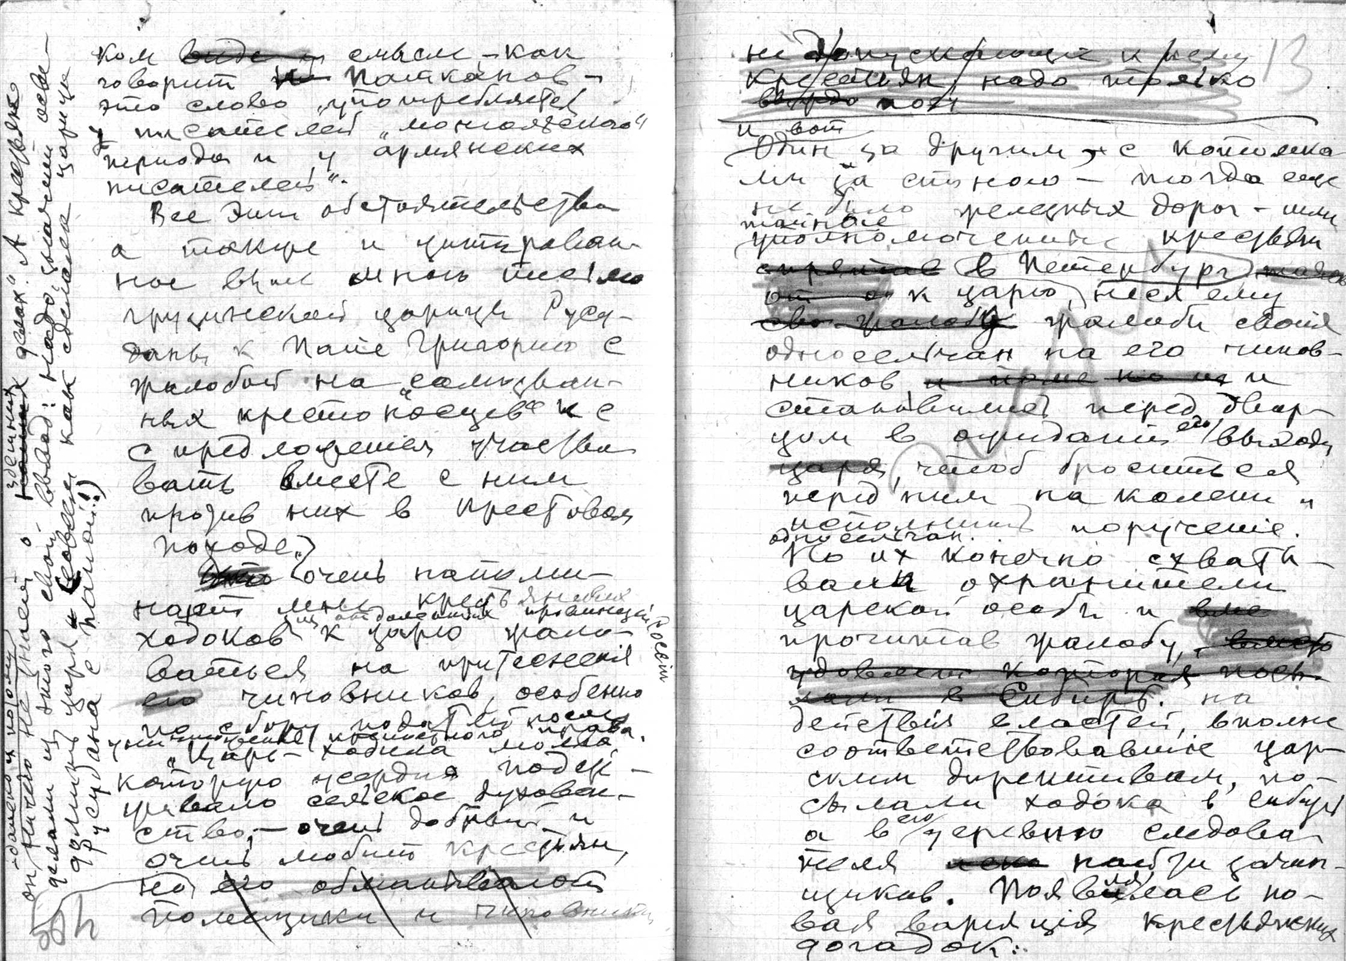 ком смысле, – как
говорит Патканов –
это слово „употребляется
у писателей „монгольского"
периода и у армянских
писателей".
Все эти обстоятельства
а также и цитирован-
ное выше мною письмо
грузинской царицы Русу-
даны к Папе Григорию с
жалобой на „самозван-
ных крестоносцев" и с
с предложением участво
вать вместе с ним
против них в Крестовом
походе,
очень напоми-
нает мне крестьянских
из отдаленных провинций России
ходоков к царю жало-
ваться на притеснения
его чиновников, особенно
по сбору податей после
уничтожения крепостного права.
„Царь – ходила молва,
которую усердно поддер-
живало сельское духовен-
ство, – очень добрый и
очень любит крестьян,
но его обманывают
помещики и чиновники
он ничего не знает о здешних делах". А крестьяне
делали из этого свой вывод: надо
царя (совсем как сделала царица
Русудана с папой!!)
не допускающие к нему
крестьян, надо только
13
и вот
Один за другим, с котомка-
ми за спиною – тогда еще
не было железных дорог – шли
тайные
уполномоченные крестьян
в Петербург
к царю, неся ему
жалобы своих
односельчан на его чинов-
ников, и
становились перед двор-
цом в ожидании его выхода,
царя, чтоб броситься
перед ним на колени и
исполнить поручение.
односельчан.
Но их конечно схваты-
вали охранители
царской особы и
прочитав жалобу,
на
действия властей, вполне
соответствовавшие цар-
ским директивам, по-
сылали ходока в Сибирь
а в его деревню следова-
теля найти зачин-
щиков. Появилась но-
вая вариация крестьянских
догадок: